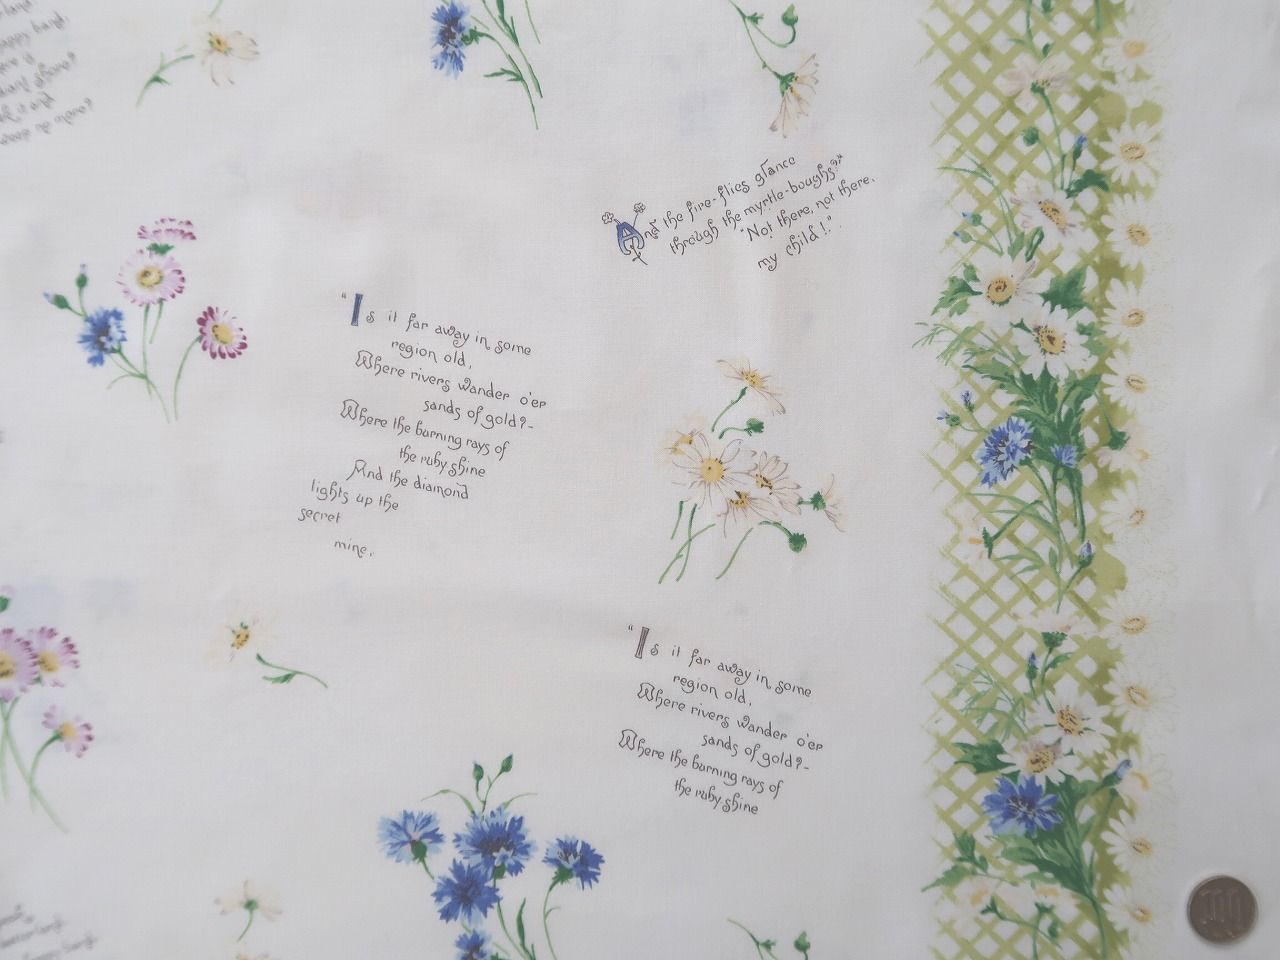 And the fire-flies glance
through the myrtle-boughs?"
"Not there, not there,
my child!"
"Is it far away in some
region old,
Where rivers wander o'er
sands of gold?-
Where the burning rays of
the ruby shine
And the diamond
lights up the
secret
mine,
"Is it far away in some
region old,
Where rivers wander o'er
sands of gold?-
Where the burning rays of
the ruby shine
100